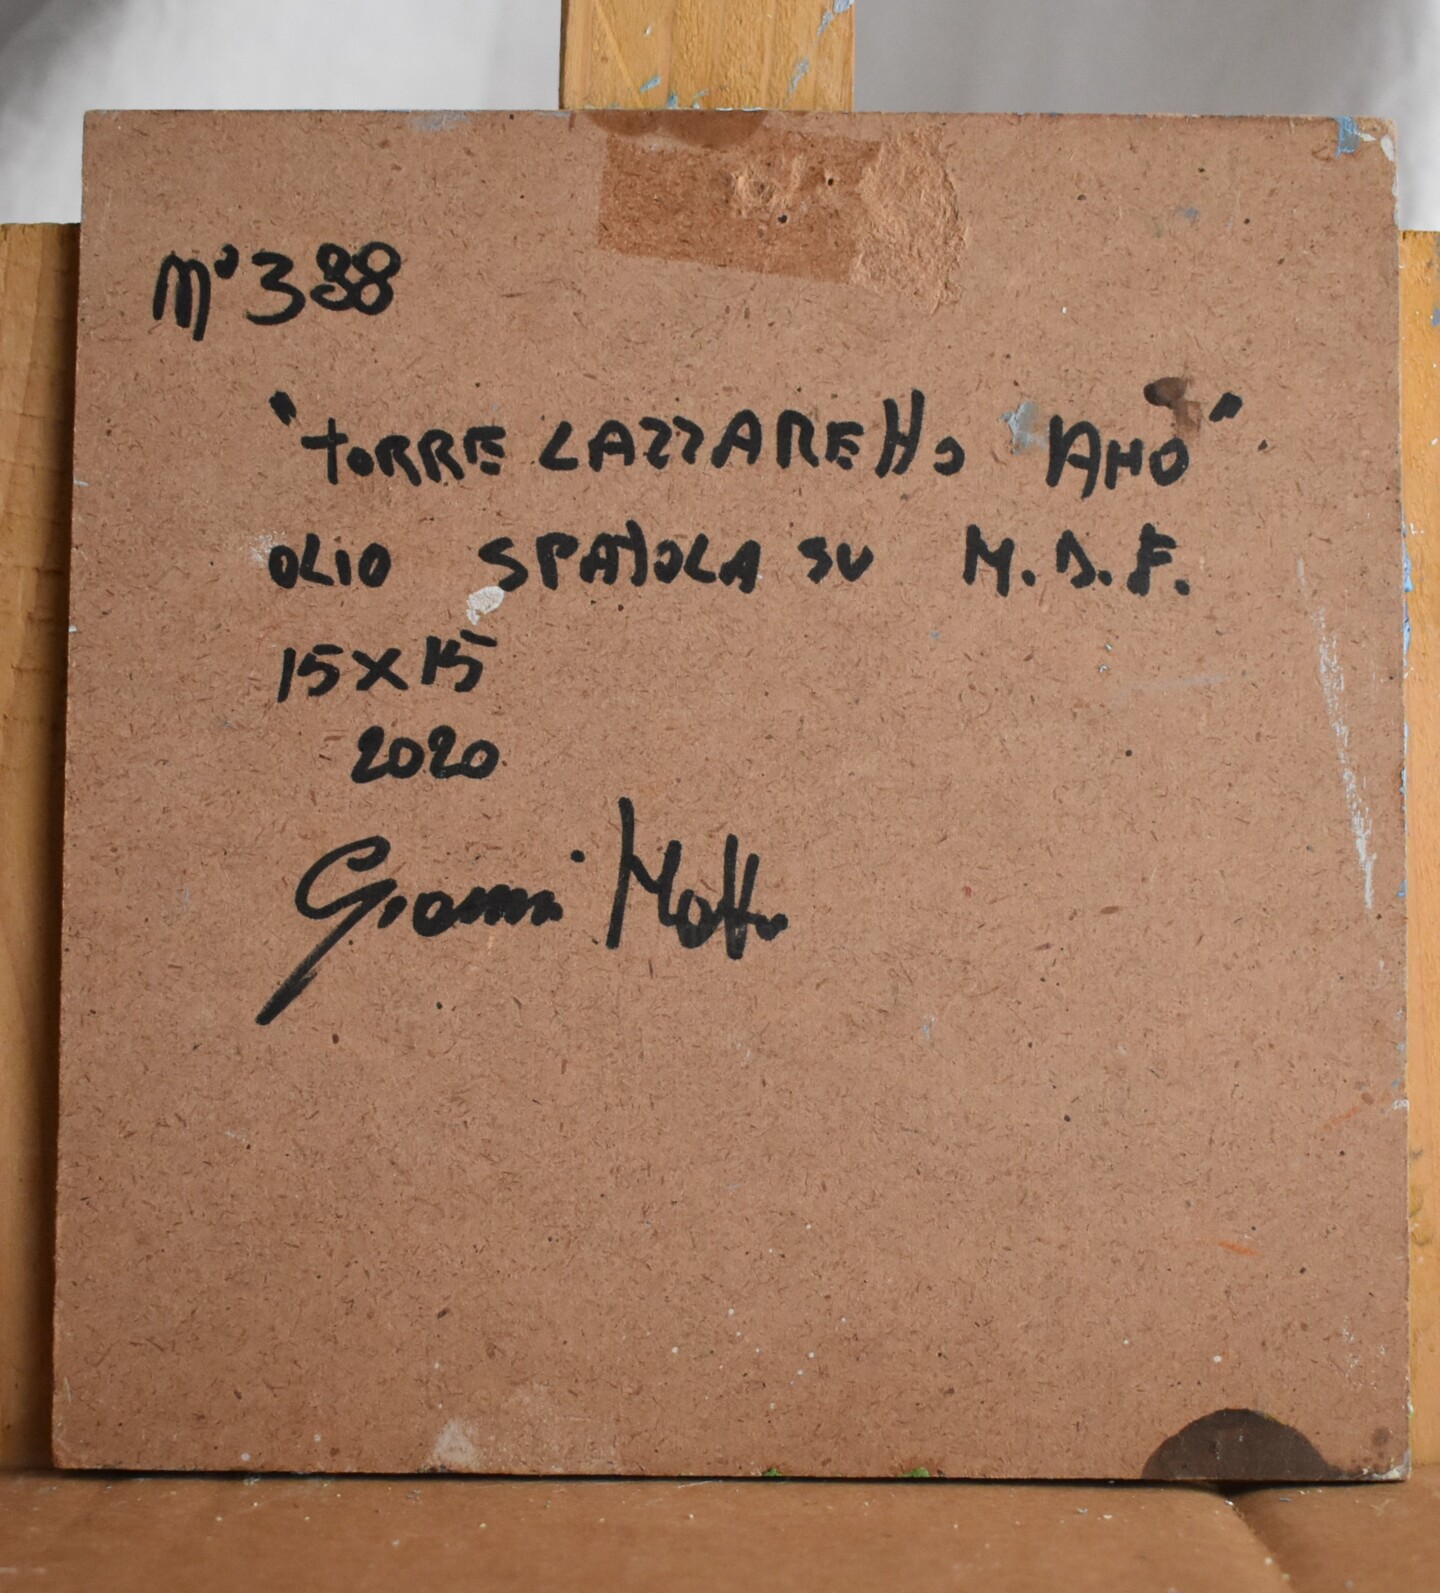 N° 338
"TORRE LAZZARETTO AHO"
OLIO SPATOLA SU M.D.F.
15X15
2020
Gianni Motta